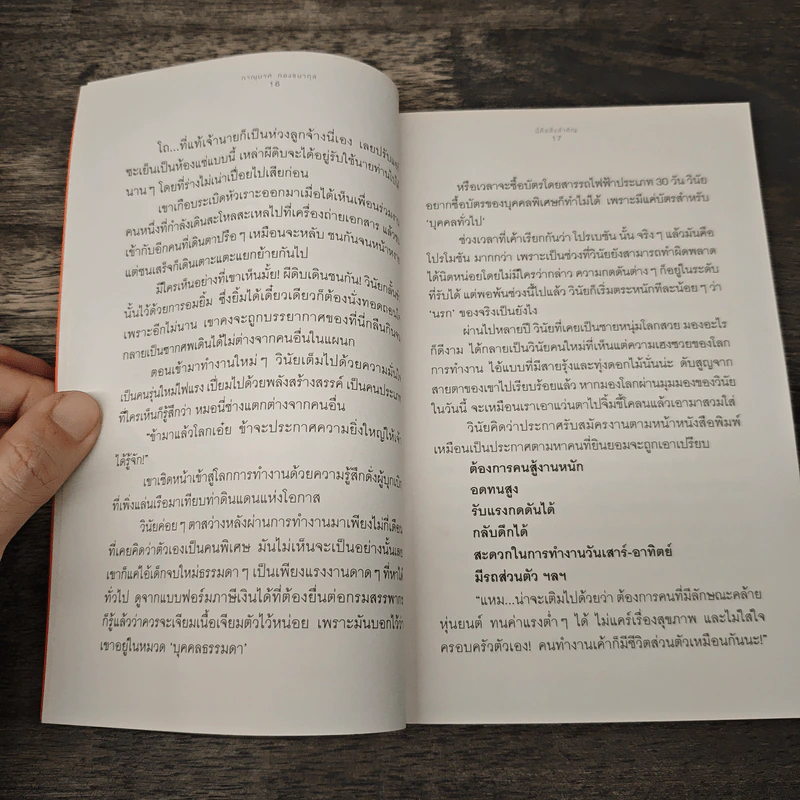 กาญจนา กองธนากุล
16
โถ...ที่แท้เจ้านายก็เป็นห่วงลูกจ้างนี่เอง เลยปรับ
ซะเย็นเป็นห้องแช่แบบนี้ เหล่าผีดิบจะได้อยู่รับใช้นายท่าน
นานๆ โดยที่ร่างไม่เน่าเปื่อยไปเสียก่อน
เขาเกือบระเบิดหัวเราะออกมาเมื่อได้เห็นเพื่อนร่วม
คนหนึ่งที่กำลังเดินสะโหลสะเหลไปที่เครื่องถ่ายเอกสาร
เข้ากับอีกคนที่เดินตาปรือๆ เหมือนจะหลับ ชนกันจน
แต่ชนเสร็จก็เดินเตาะแตะแยกย้ายกันไป
มีใครเห็นอย่างที่เขาเห็นมั้ย! ผีดิบเดินชนกัน! วินัย
นั้นไว้ด้วยการอมยิ้ม ซึ่งยิ้มได้เดี๋ยวเดียวก็ต้องนั่งทอดถอน
เพราะอีกไม่นาน เขาคงจะถูกบรรยากาศของที่นี่กลืนกิน
กลายเป็นซากศพเดินได้ไม่ต่างจากคนอื่นในแผนก
ตอนเข้ามาทำงานใหม่ๆ วินัยเต็มไปด้วยความ
เป็นคนรุ่นใหม่ไฟแรง เปี่ยมไปด้วยพลังสร้างสรรค์ เป็นคน
ที่ใครเห็นก็รู้สึกว่า หมอนี่ช่างแตกต่างจากคนอื่น
“ข้ามาแล้วโลกเอ๋ย ข้าจะประกาศความยิ่งใหญ่ให้
ได้รู้จัก!”
เขาเชิดหน้าเข้าสู่โลกการทำงานด้วยความรู้สึกดั่งผู้บุกเบิก
ที่เพิ่งแล่นเรือมาเทียบท่าดินแดนแห่งโอกาส
วินัยค่อยๆ ตาสว่างหลังผ่านการทำงานมาเพียงไม่กี่เดือน
ที่เคยคิดว่าตัวเองเป็นคนพิเศษ มันไม่เห็นจะเป็นอย่างนั้นเลย
เขาก็แค่ไอ้เด็กจบใหม่ธรรมดาๆ เป็นเพียงแรงงานดาดๆ ที่หาได้
ทั่วไป ดูจากแบบฟอร์มภาษีเงินได้ที่ต้องยื่นต่อกรมสรรพากร
ก็รู้แล้วว่าควรจะเจียมเนื้อเจียมตัวไว้หน่อย เพราะมันบอกไว้ว่า
เขาอยู่ในหมวด ‘บุคคลธรรมดา’
17
หรือเวลาจะซื้อบัตรโดยสารรถไฟฟ้าประเภท 30 วัน วินัย
อยากซื้อบัตรของบุคคลพิเศษก็ทำไม่ได้ เพราะมีแค่บัตรสำหรับ
‘บุคคลทั่วไป’
ช่วงเวลาที่เค้าเรียกกันว่า โปรเบชัน นั้น จริงๆ แล้วมันคือ
โปรโมชัน มากกว่า เพราะเป็นช่วงที่วินัยยังสามารถทำผิดพลาด
ได้นิดหน่อยโดยไม่มีใครว่ากล่าว ความกดดันต่างๆ ก็อยู่ในระดับ
ที่รับได้ แต่พอพ้นช่วงนี้ไปแล้ว วินัยก็เริ่มตระหนักทีละน้อยๆ ว่า
‘นรก’ ของจริงเป็นยังไง
ผ่านไปหลายปี วินัยที่เคยเป็นชายหนุ่มโลกสวย มองอะไร
ก็ดีงาม ได้กลายเป็นวินัยคนใหม่ที่เห็นแต่ความเฮงซวยของโลก
การทำงาน ไอ้แบบที่มีสายรุ้งและทุ่งดอกไม้นั่นน่ะ ดับสูญจาก
สายตาของเขาไปเรียบร้อยแล้ว หากมองโลกผ่านมุมมองของวินัย
ในวันนี้ จะเหมือนเราเอาแว่นตาไปจิ้มขี้โคลนแล้วเอามาสวมใส่
วินัยคิดว่าประกาศรับสมัครงานตามหน้าหนังสือพิมพ์
เหมือนเป็นประกาศตามหาคนที่ยินยอมจะถูกเอาเปรียบ
ต้องการคนสู้งานหนัก
อดทนสูง
รับแรงกดดันได้
กลับดึกได้
สะดวกในการทำงานวันเสาร์-อาทิตย์
มีรถส่วนตัว ฯลฯ
“แหม...น่าจะเติมไปด้วยว่า ต้องการคนที่มีลักษณะคล้าย
หุ่นยนต์ ทนค่าแรงต่ำๆ ได้ ไม่แคร์เรื่องสุขภาพ และไม่ใส่ใจ
ครอบครัวตัวเอง! คนทำงานเค้าก็มีชีวิตส่วนตัวเหมือนกันนะ!”